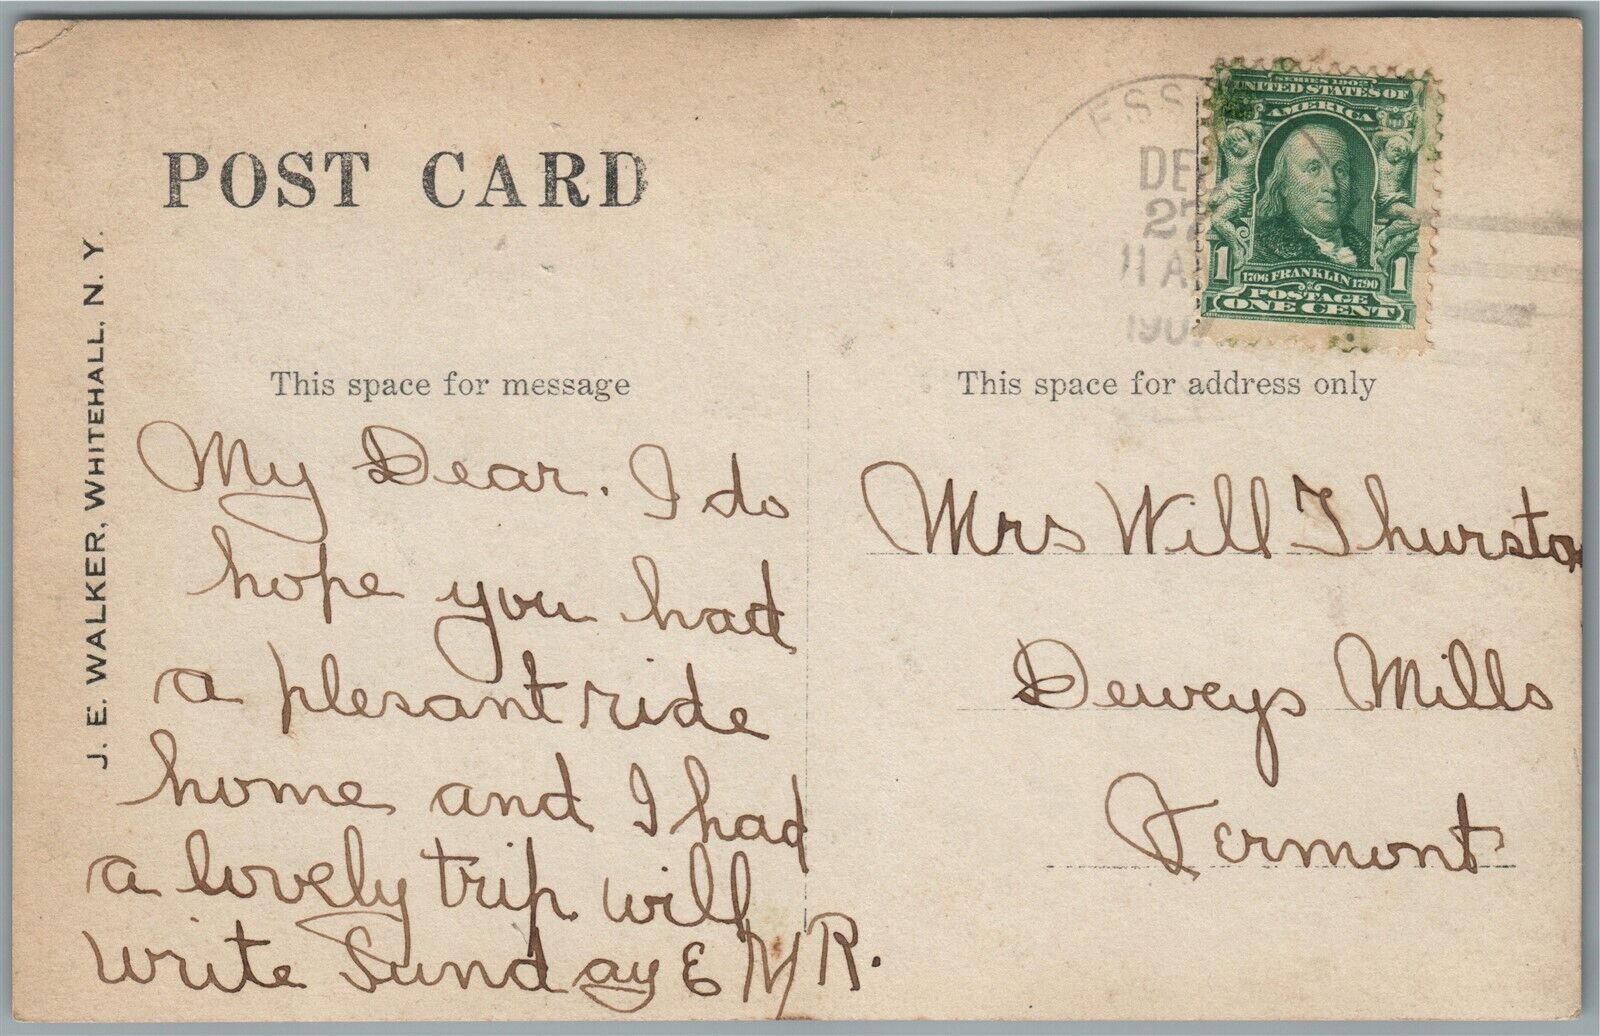 POST CARD
J. E. WALKER, WHITEHALL, N. Y.
DE
27
11 A
190
SERIES 1902
UNITED STATES OF
AMERICA
1706 FRANKLIN 1790
1 1
POSTAGE
ONE CENT
This space for message
This space for address only
My Dear. I do
hope you had
a plesant ride
home and I had
a lovely trip. will
write Sunday E M R.
Mrs Will Thurston
Deweys Mills
Vermont